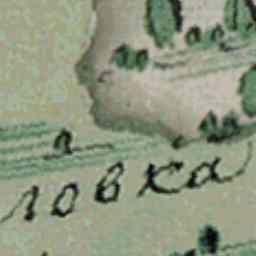 ловка